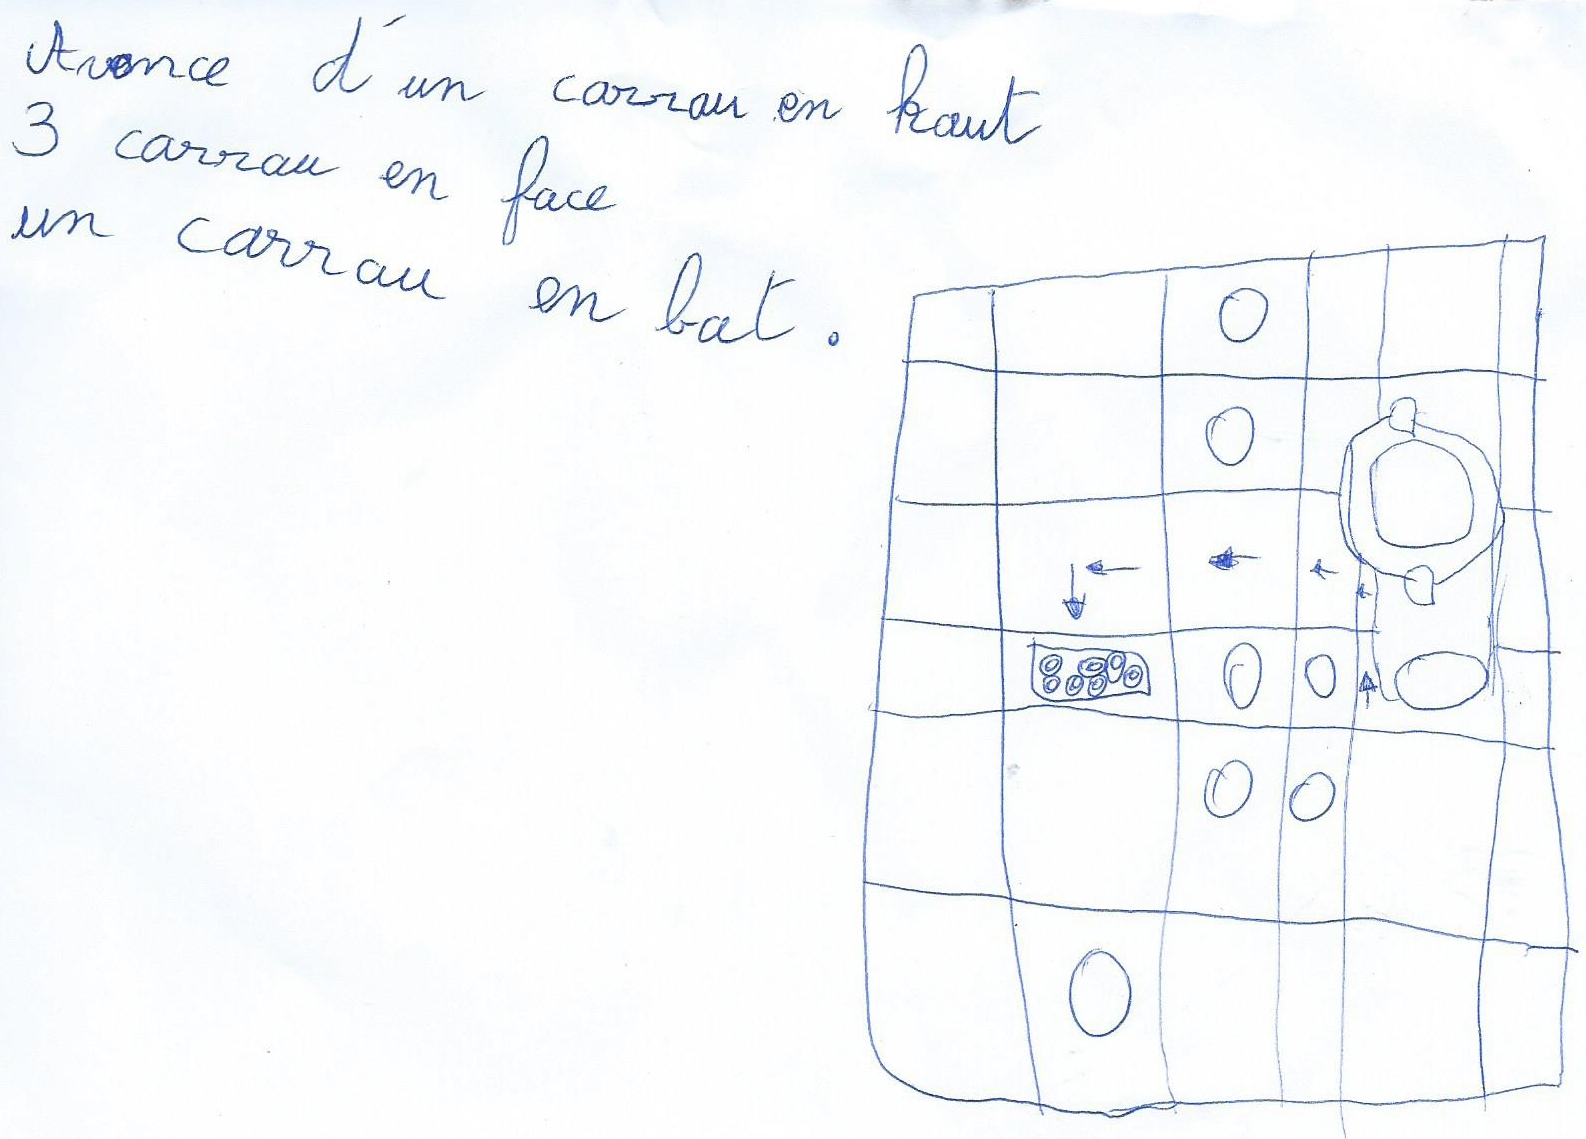 Avance d'un carrau en haut
3 carrau en face
un carrau en bat.